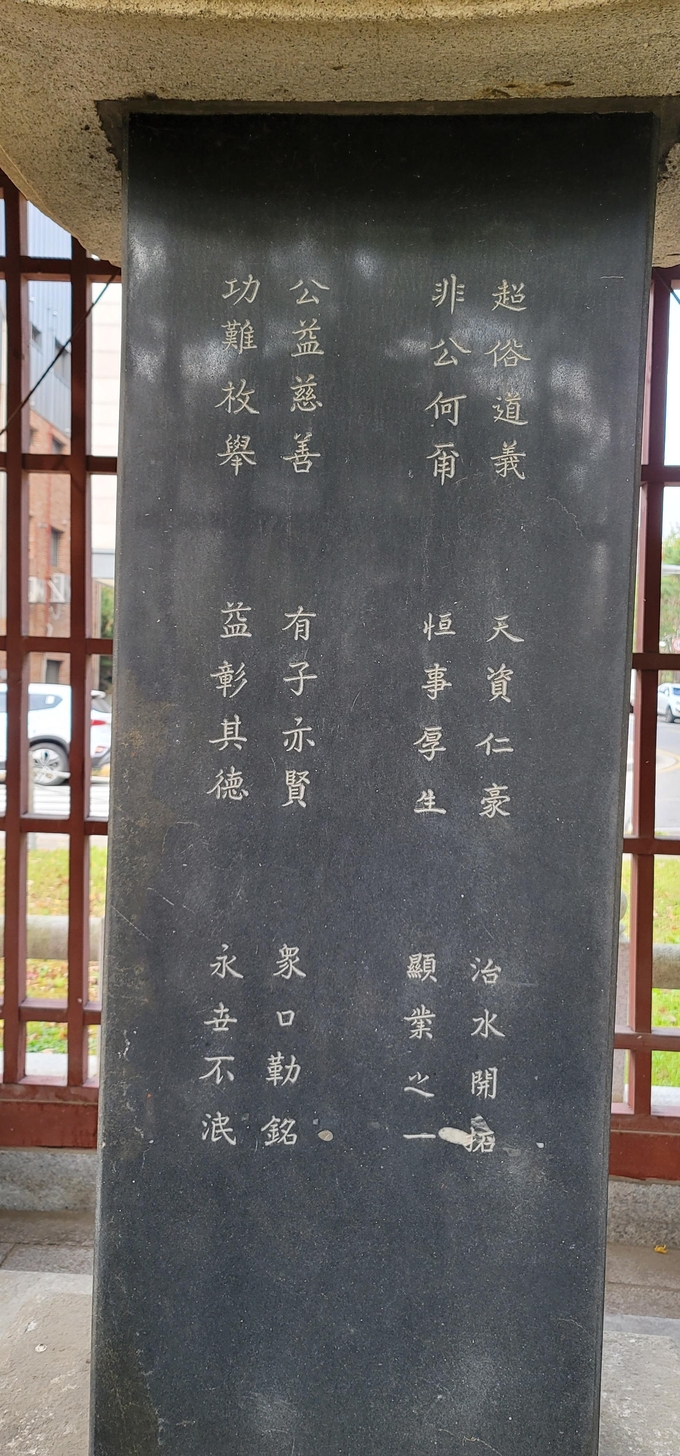 超俗道義 天資仁豪 治水開拓
非公何爾 恒事厚生 顯業之一
公益慈善 有子亦賢 衆口勒銘
功難枚舉 益彰其德 永世不泯